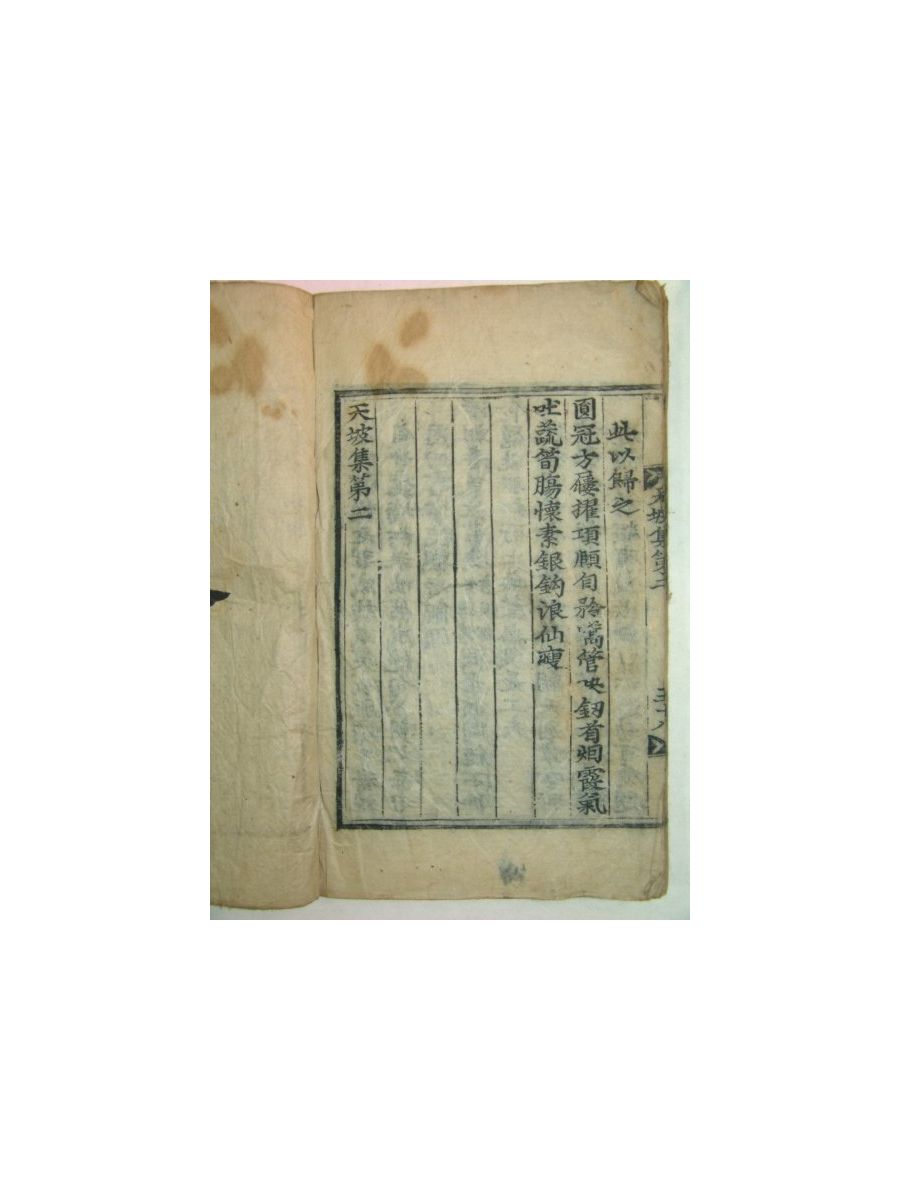 天坡集第二
三十八
此以歸之
圓冠方屨擢項願自矜嗃管吷釰首烟霞氣
吐蔬筍膓懷素銀鈎浪仙瘦
天坡集第二